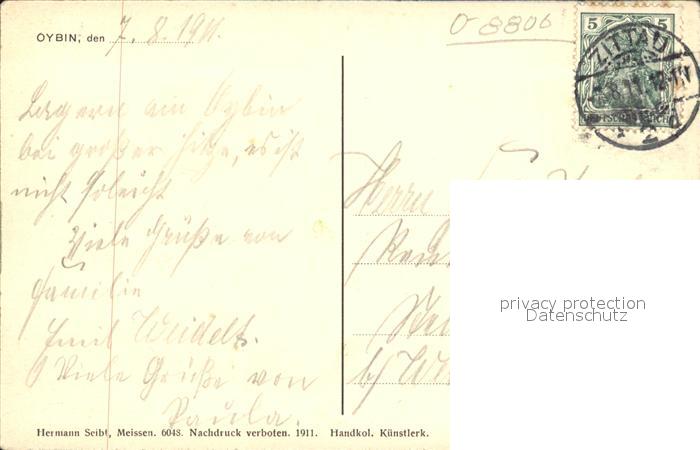 OYBIN, den 7. 8. 1911.
O-8806
5 5
ZITTAU
DEUTSCHES REICH
Lagern am Oybin
bei großer Hitze, es ist
nicht so leicht
Viele Grüße von
Familie
Emil Weidelt.
Viele Grüße von
Paula.
Herrn
privacy protection
Datenschutz
Hermann Seibt, Meissen. 6048. Nachdruck verboten. 1911. Handkol. Künstlerk.